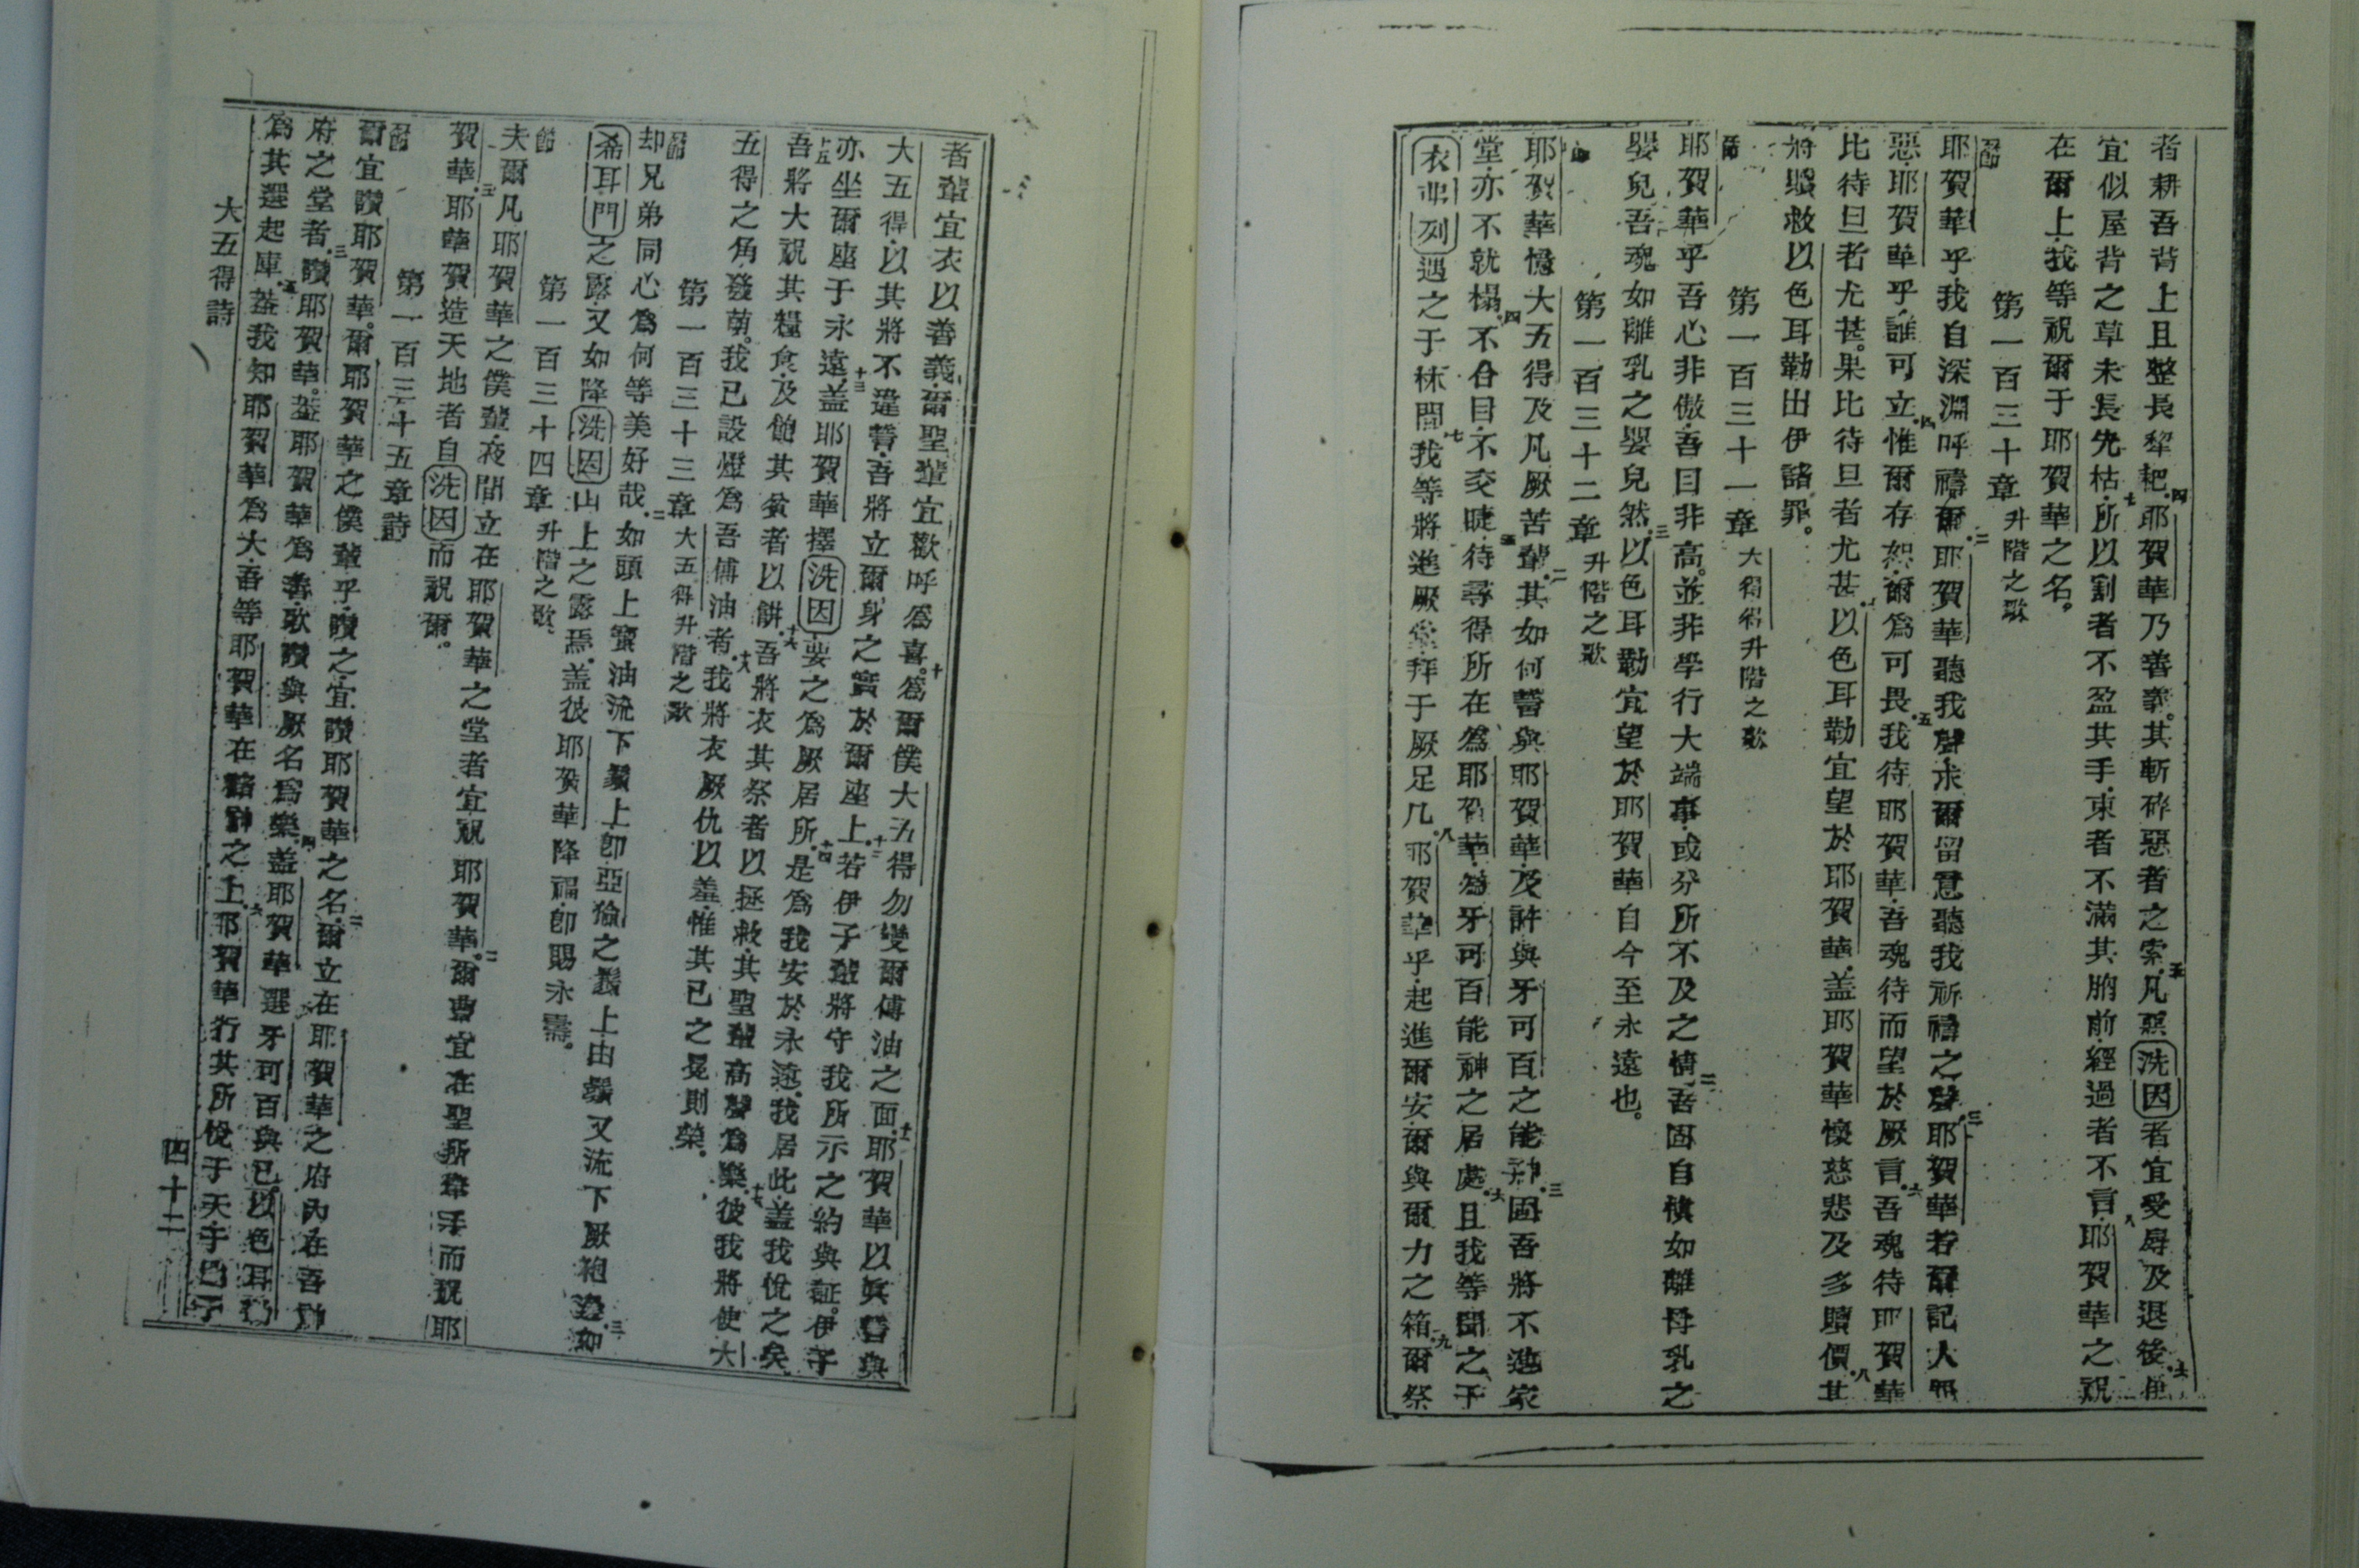 者耕吾背上且整長犁耙四耶賀華乃善義其斬碎惡者之索五凡惡洗因者宜受辱及退後六
宜似屋背之草未長先枯七所以割者不盈其手束者不滿其胸前八經過者不言耶賀華之祝
在爾上我等祝爾于耶賀華之名
第一百三十章升階之歌
耶賀華乎我自深淵呼禱爾二耶賀華聽我聲求爾留意聽我祈禱之聲三耶賀華若爾記人
惡耶賀華乎誰可立四惟爾存恕爾爲可畏五我待耶賀華吾魂待而望於厥言六吾魂待耶賀華
比待旦者尤甚果比待旦者尤甚七以色耳勒宜望於耶賀華蓋耶賀華懷慈悲及多贖價八其
將贖救以色耳勒出伊諸罪
第一百三十一章大五得升階之歌
耶賀華乎吾心非傲吾目非高並非學行大端事或分所不及之情二吾固自慎如離母乳之
嬰兒吾魂如離乳之嬰兒然三以色耳勒宜望於耶賀華自今至永遠也
第一百三十二章升階之歌
耶賀華憶大五得及凡厥苦輩二其如何誓與耶賀華及許與牙可百之能神三固吾將不進家
堂亦不就榻四不合目不交睫五待尋得所在爲耶賀華爲牙可百能神之居處六且我等聞之于
遇之于林間七我等將進厥堂拜于厥足几八耶賀華乎起進爾安爾與爾力之箱九爾祭
者輩宜衣以善義爾聖輩宜歡呼爲喜十爲爾僕大五得勿變爾傅油之面十一耶賀華以眞誓與
大五得以其將不違誓吾將立爾身之實於爾座上十二若伊子輩將守我所示之約與証伊子
亦坐爾座于永遠十三蓋耶賀華擇洗因要之爲厥居所十四是爲我安於永遠我居此蓋我悅之矣
十五吾將大祝其糧食及飽其貧者以餅十六吾將衣其祭者以拯救其聖輩高聲爲樂十七彼我將使大
五得之角發萌我已設燈爲吾傅油者十八我將衣厥仇以羞惟其己之冕則榮
第一百三十三章大五得升階之歌
却兄弟同心爲何等美好哉二如頭上寶油流下鬚上卽亞倫之鬚上由鬚又流下厥袍邊三如
希耳門之露又如降洗因山上之露焉蓋彼耶賀華降福卽賜永壽
第一百三十四章升階之歌
夫爾凡耶賀華之僕輩夜間立在耶賀華之堂者宜祝耶賀華二爾曹宜在聖所舉手而祝耶
賀華三耶華賀造天地者自洗因而祝爾
第一百三十五章詩
爾宜讚耶賀華爾耶賀華之僕輩乎讚之宜讚耶賀華之名二爾立在耶賀華之府內在吾神
府之堂者三讚耶賀華蓋耶賀華爲善歌讚與厥名爲樂四蓋耶賀華選牙可百與已以色耳勒
爲其選起庫五蓋我知耶賀華爲大吾等耶賀華在諸神之上六耶賀華行其所悅于天于地于
大五得詩
四十二